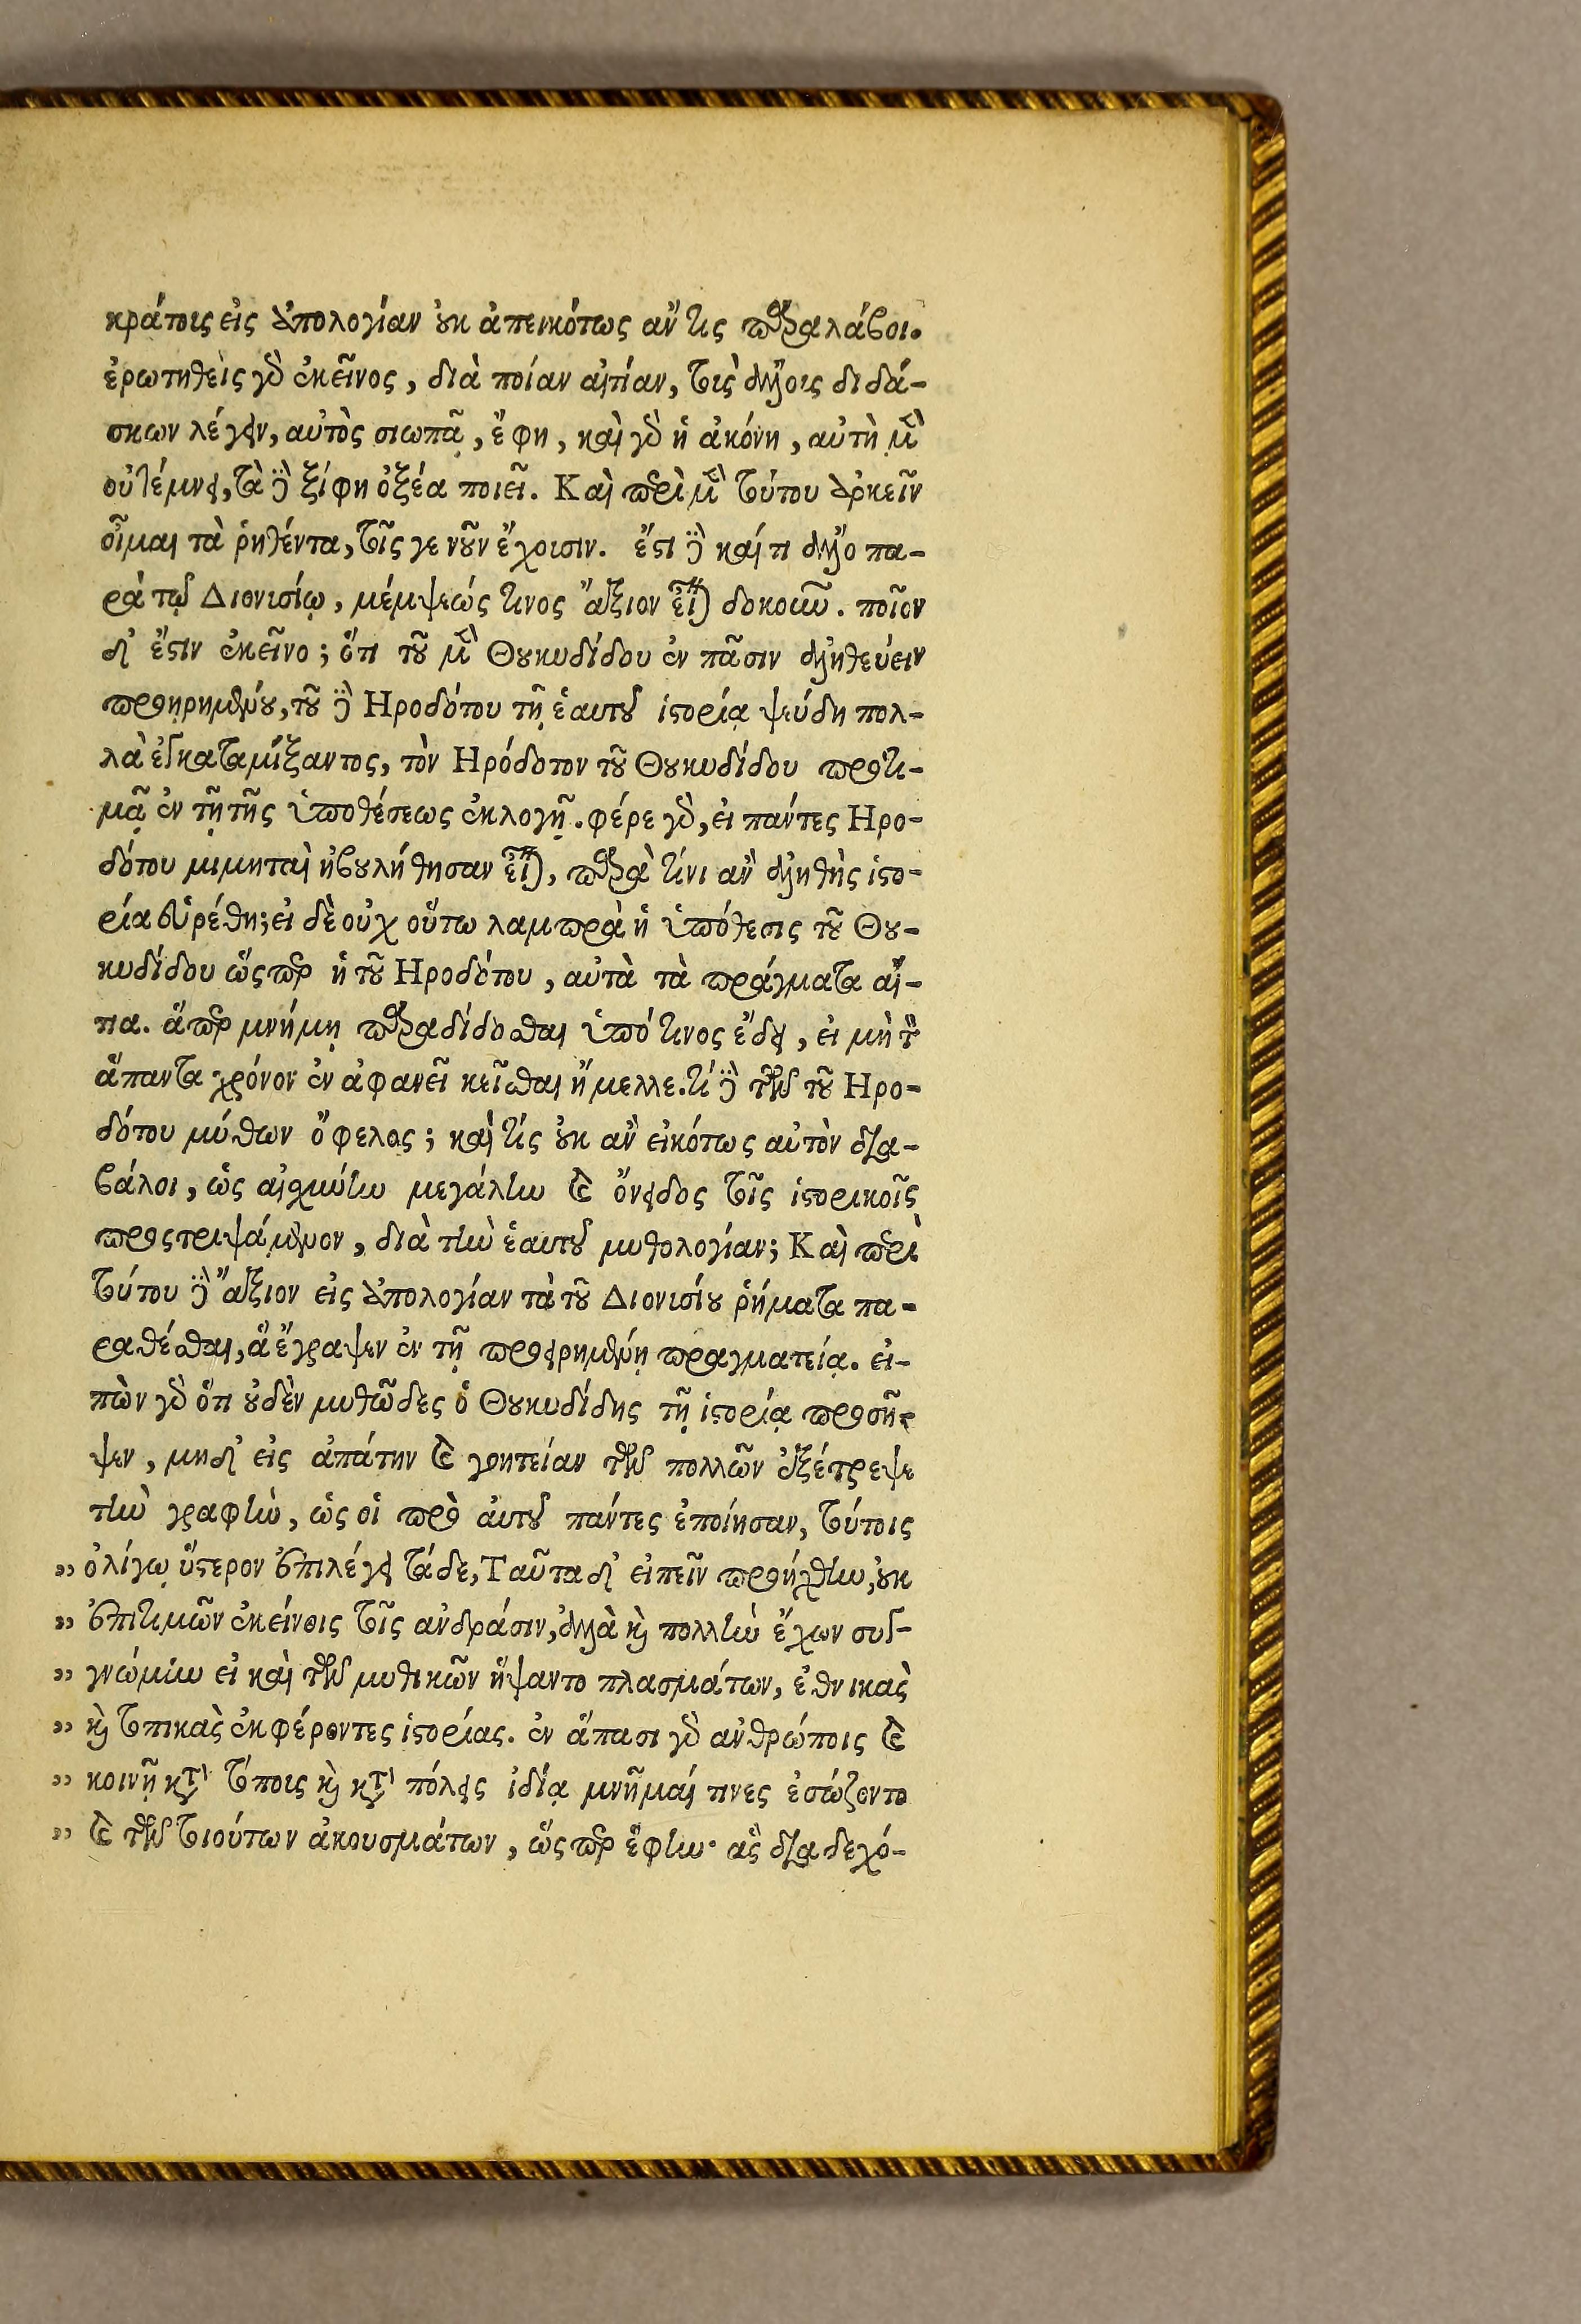 κράτοις εἰς ἀπολογίαν οὐκ ἀπεικότως ἄν τις παραλάβοι.
ἐρωτηθεὶς γὰρ ἐκεῖνος, διὰ ποίαν αἰτίαν, τοὺς ἄλλους διδά-
σκων λέγειν, αὐτὸς σιωπᾷ, ἔφη, καὶ γὰρ ἡ ἀκόνη, αὐτὴ μὲν
οὐ τέμνει, τὰ δὲ ξίφη ὀξέα ποιεῖ. Καὶ περὶ μὲν τούτου ἀρκεῖν
οἶμαι τὰ ῥηθέντα, τοῖς γε νοῦν ἔχουσιν. ἔστι δὲ καί τι ἄλλο πα-
ρὰ τῷ Διονυσίῳ, μέμψεώς τινος ἄξιον εἶναι δοκοῦν. ποῖον
δ' ἔστιν ἐκεῖνο; ὅτι τοῦ μὲν Θουκυδίδου ἐν πᾶσιν ἀληθεύειν
προῃρημένου, τοῦ δὲ Ηροδότου τῇ ἑαυτοῦ ἱστορίᾳ ψεύδη πολ-
λὰ ἐγκαταμίξαντος, τὸν Ηρόδοτον τοῦ Θουκυδίδου προτι-
μᾷ ἐν τῇ τῆς ὑποθέσεως ἐκλογῇ. φέρε γὰρ, εἰ πάντες Ηρο-
δότου μιμηταὶ ἠβουλήθησαν εἶναι, παρὰ τίνι ἂν ἀληθὴς ἱστο-
ρία εὑρέθη; εἰ δὲ οὐχ οὕτω λαμπρὰ ἡ ὑπόθεσις τοῦ Θου-
κυδίδου ὥςπερ ἡ τοῦ Ηροδότου, αὐτὰ τὰ πράγματα αἴ-
τια. ἅπερ μνήμῃ παραδίδοσθαι ὑπό τινος ἔδει, εἰ μὴ τὸν
ἅπαντα χρόνον ἐν ἀφανεῖ κεῖσθαι ἤμελλε. τί δὲ τῶν τοῦ Ηρο-
δότου μύθων ὄφελος; καὶ τίς οὐκ ἂν εἰκότως αὐτὸν δια-
βάλοι, ὡς αἰσχύνην μεγάλην καὶ ὄνειδος τοῖς ἱστορικοῖς
προςτριψάμενον, διὰ τὴν ἑαυτοῦ μυθολογίαν; Καὶ περὶ
τούτου δὲ ἄξιον εἰς ἀπολογίαν τὰ τοῦ Διονυσίου ῥήματα πα-
ραθέσθαι, ἃ ἔγραψεν ἐν τῇ προειρημένῃ πραγματείᾳ. εἰ-
πὼν γὰρ ὅτι οὐδὲν μυθῶδες ὁ Θουκυδίδης τῇ ἱστορίᾳ προσῆ-
ψεν, μηδ' εἰς ἀπάτην καὶ γοητείαν τῶν πολλῶν ἐξέτρεψε
τὴν γραφὴν, ὡς οἱ πρὸ αὐτοῦ πάντες ἐποίησαν, τούτοις
„ ὀλίγῳ ὕστερον ἐπιλέγει τάδε, Ταῦτα δ' εἰπεῖν προήχθην, οὐκ
„ ἐπιτιμῶν ἐκείνοις τοῖς ἀνδράσιν, ἀλλὰ καὶ πολλὴν ἔχων συγ-
„ γνώμην εἰ καὶ τῶν μυθικῶν ἥψαντο πλασμάτων, ἐθνικὰς
„ καὶ τοπικὰς ἐκφέροντες ἱστορίας. ἐν ἅπασι γὰρ ἀνθρώποις καὶ
„ κοινῇ κατὰ τόπους καὶ κατὰ πόλεις ἰδίᾳ μνῆμαί τινες ἐσώζοντο
„ καὶ τῶν τοιούτων ἀκουσμάτων, ὥςπερ ἔφην· ἃς διαδεχό-